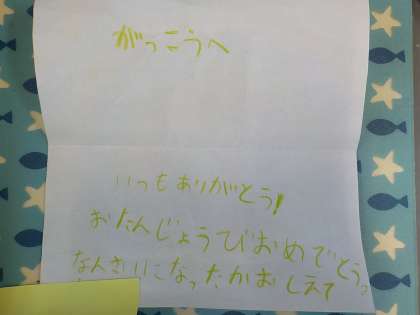 がっこうへ
いつもありがとう!
おたんじょうびおめでとう。
なんさいになったかおしえて